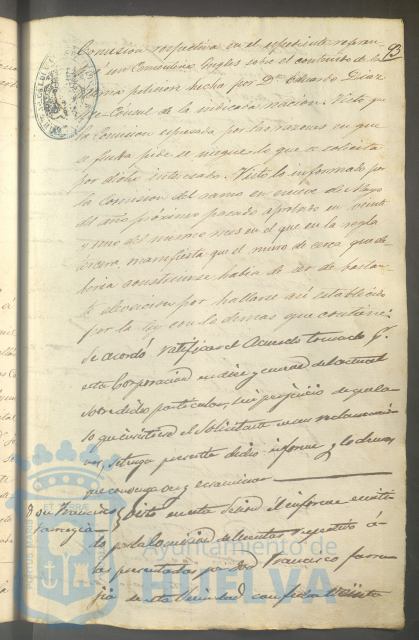 93
Comision respectiva en el espediente
á un Cementerio Ingles sobre el contenido de la
peticion hecha por Dn. Eduardo Diaz
Vice Cónsul de la indicada nacion. Visto que
la Comision espresada por las razones en que
se funda pide se niegue lo que se solicita
por dicho interesado. Visto lo informado por
la Comision del ramo en nueve de Mayo
del año próximo pasado aprobado en veinte
y uno del mismo mes en el que en la regla
tercera, manifiesta que el muro de cerca que de-
beria construirse habia de ser de bastan-
te elevacion por hallarse asi establecido
por la ley con lo demas que contiene:
Se acordó ratificar el Acuerdo tomado pr.
esta Corporacion en diez y nueve del actual
sobre dicho particular, sin perjuicio de que ca-
so que insistiese el Solicitante en su reclamacion
se tenga presente dicho informe y lo demas
que convenga ecsaminar.
Don Francisco
Visto en este Seson el informe emiti-
do por la Comision de Cuentas respectivo á
las presentadas por Don Francisco
de esta Vecindad con fecha Veinte
Ayuntamiento de
HUELVA